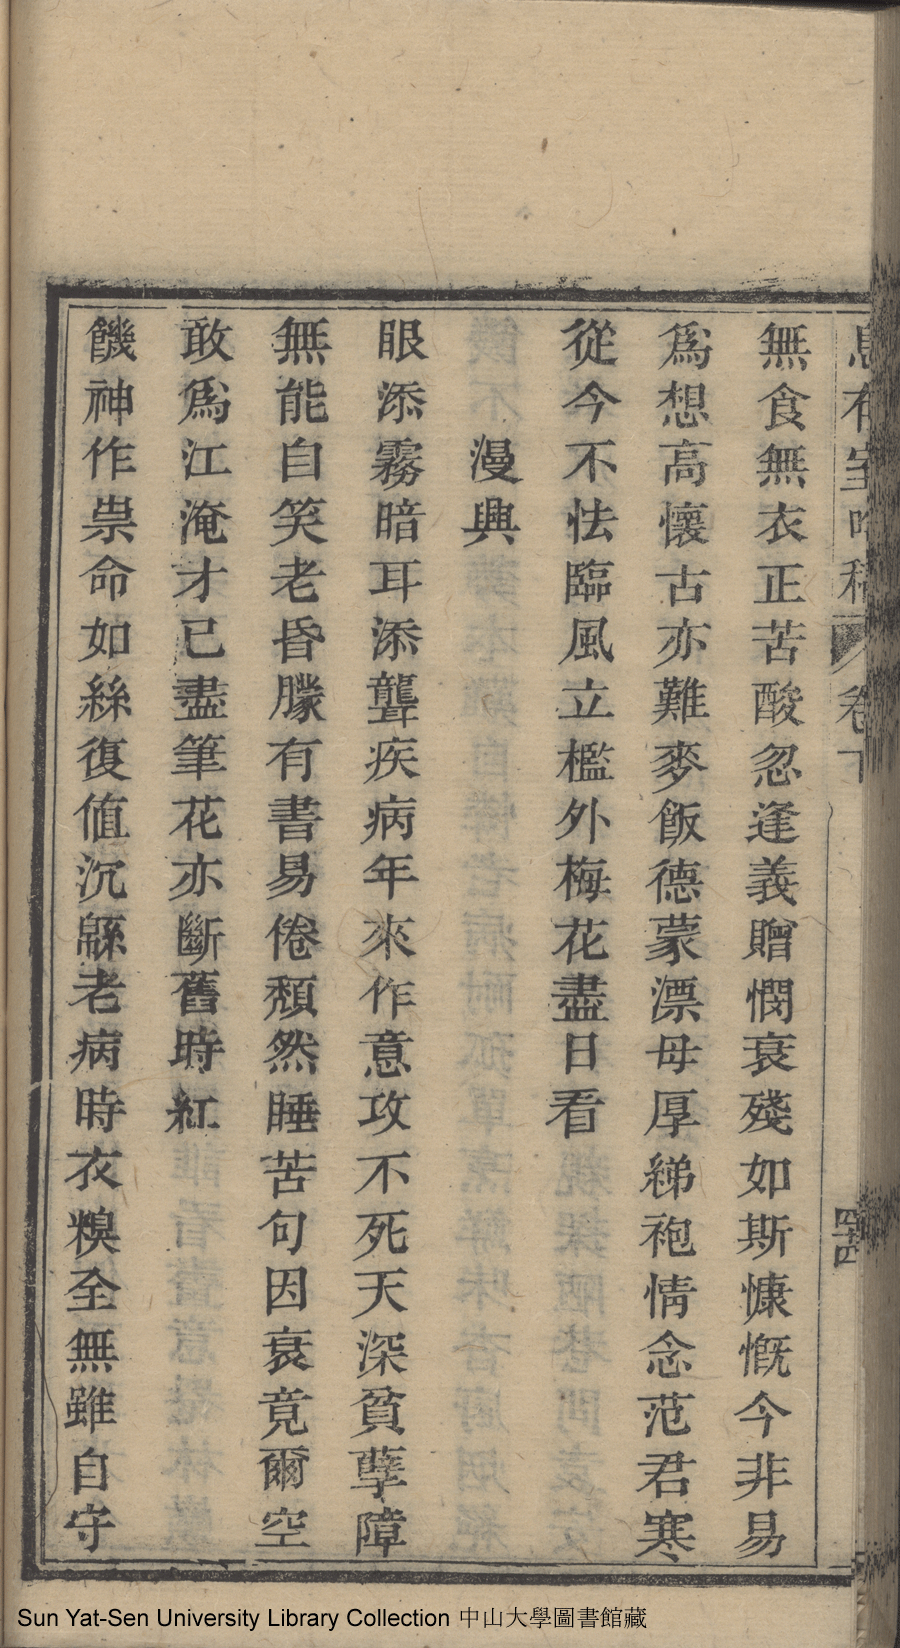 卷下
四十四
無食無衣正苦酸忽逢義贈憫衰殘如斯慷慨今非易
爲想高懷古亦難麥飯德蒙漂母厚綈袍情念范君寒
從今不怯臨風立檻外梅花盡日看
漫興
眼添霧暗耳添聾疾病年來作意攻不死天深貧孽障
無能自笑老昏朦有書易倦頽然睡苦句因衰竟爾空
敢爲江淹才已盡筆花亦斷舊時紅
饑神作祟命如絲復值沉緜老病時衣糗全無雖自守
Sun Yat-Sen University Library Collection 中山大學圖書館藏